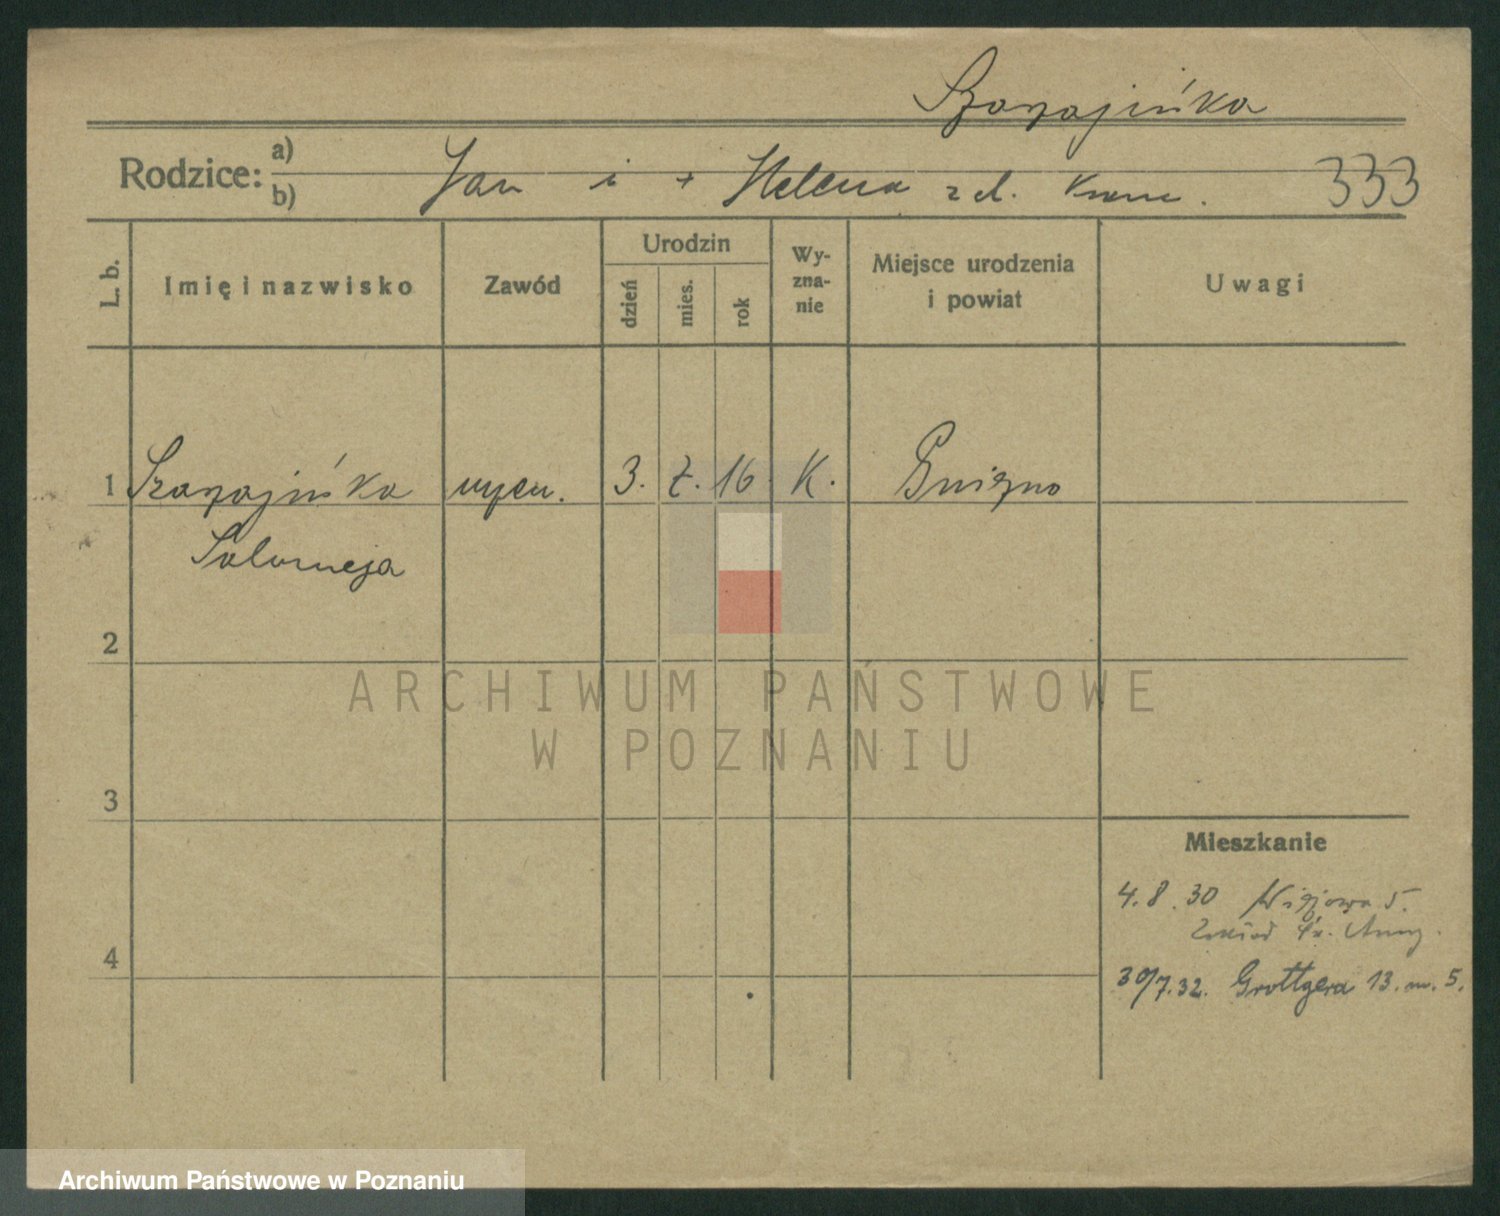 Szarzajińska
Rodzice: a) b) Jan i + Helena 333
L. b. Imię i nazwisko Zawód Urodzin dzień mies. rok Wy-zna-nie Miejsce urodzenia i powiat Uwagi
1 3. 2. 16 K. Gniezno
Salomeja
2
ARCHIWUM PAŃSTWOWE
W POZNANIU
3
Mieszkanie
4. 8. 30 5.
Zakład Św. Anny.
4
30/7.32. Grottgera 13. m. 5.
Archiwum Państwowe w Poznaniu